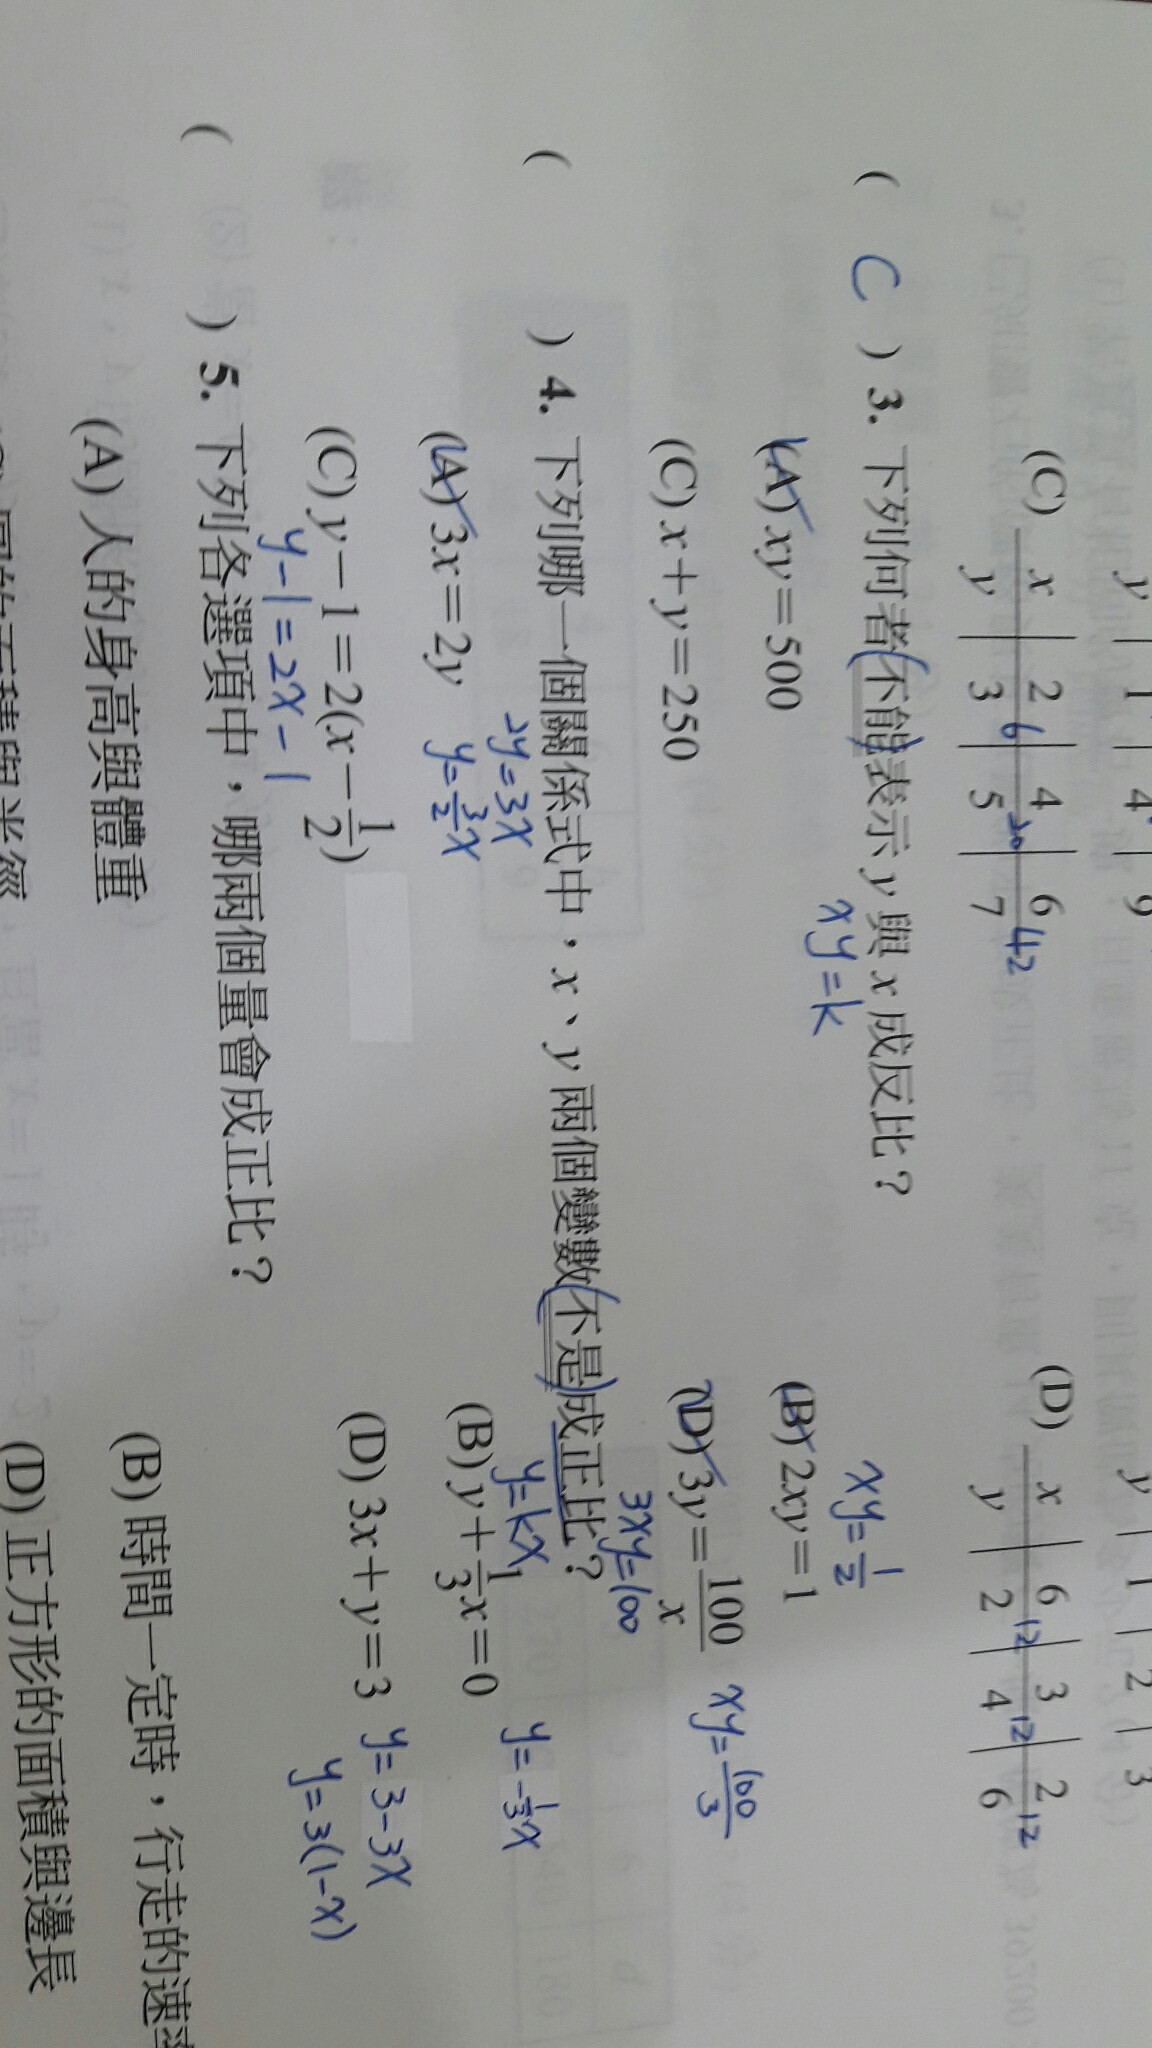 y 1 4 9
y 1 2 3
(C) x 2 4 6
y 3 5 7
6 20 42
(D) x 6 3 2
y 2 4 6
12 12 12
( C ) 3. 下列何者不能表示 y 與 x 成反比？
xy=k
(A) xy=500
(B) 2xy=1
xy=1/2
(C) x+y=250
(D) 3y=100/x
xy=100/3
3xy=100
( ) 4. 下列哪一個關係式中，x、y 兩個變數不是成正比？
y=kx
(A) 3x=2y
2y=3x
y=3/2x
(B) y+1/3x=0
y=-1/3x
(C) y-1=2(x-1/2)
y-1=2x-1
(D) 3x+y=3
y=3-3x
y=3(1-x)
( ) 5. 下列各選項中，哪兩個量會成正比？
(A) 人的身高與體重
(B) 時間一定時，行走的速
圓的面積與半徑
(D) 正方形的面積與邊長